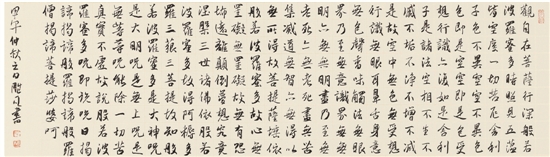 觀自在菩薩行深般若
波羅蜜多時照見五蘊
皆空度一切苦厄舍利
子色不異空空不異色
色即是空空即是色受
想行識亦復如是舍利
子是諸法空相不生不
滅不垢不淨不增不減
是故空中無色無受想
行識無眼耳鼻舌身意
無色聲香味觸法無眼
界乃至無意識界無無
明亦無無明盡乃至無
老死亦無老死盡無苦
集滅道無智亦無得以
無所得故菩提薩埵依
般若波羅蜜多故心無
罣礙無罣礙故無有恐
怖遠離顛倒夢想究竟
涅槃三世諸佛依般若
波羅蜜多故得阿耨多
羅三藐三菩提故知般
若波羅蜜多是大神咒
是大明咒是無上咒是
無等等咒能除一切苦
真實不虛故說般若波
羅蜜多咒即說咒曰揭
諦揭諦般羅揭諦般羅
僧揭諦菩提莎婆呵
甲午仲秋之日 書